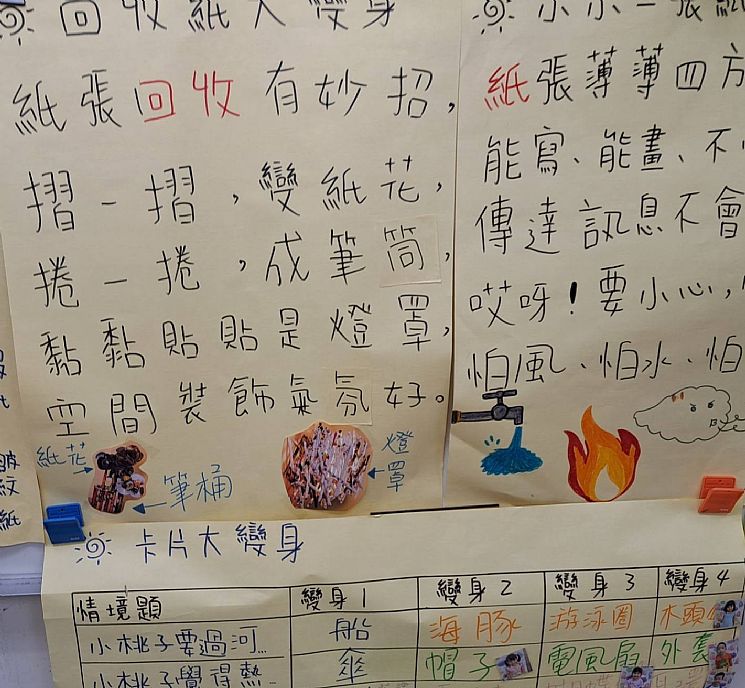 回收紙大變身
紙張回收有妙招,
摺一摺,變紙花,
捲一捲,成筆筒,
黏黏貼貼是燈罩,
空間裝飾氣氛好。
紙花
筆桶
燈罩
小小一張紙
紙張薄薄四方
能寫、能畫、不
傳達訊息不會
哎呀!要小心,
怕風、怕水、怕
皺紋紙
卡片大變身
情境題 變身1 變身2 變身3 變身4
小桃子要過河... 船 海豚 游泳圈 木頭
小桃子覺得熱... 傘 帽子 電風扇 外套